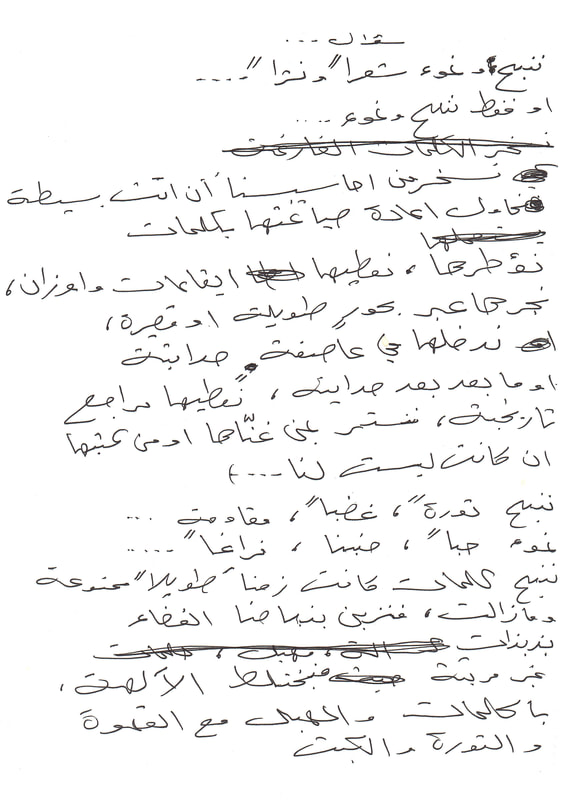 سؤال ...
ننبح او نموء شعرا" ونثرا" ....
او فقط ننبح ونموء ....
نسخر من احاسيسنا أن اتت بسيطة
نحاول اعادة صياغتها بكلمات
نؤطرها ، نعطيها ايقاعات واوزان ،
نجرها عبر بحور طويلة او قصيرة ،
ندخلها في عاصفة حداثية
او ما بعد بعد حداثية ، نعطيها مراجع
تاريخية ، نستمر بمن غنّاها او من كتبها
ان كانت ليست لنا ... )
ننبح ثورة" ، غضبا" ، مقاومة ...
نموء حبا" ، جنسا ، فراغا" .....
ننبح كلمات كانت زمنا" طويلا" ممنوعة
وما زالت ، فنزين بنباحنا الفضاء
بذبذبات
غير مرئية فتختلط الآلهة ،
بالكلمات والمهبل مع القهوة
والثورة والكبت